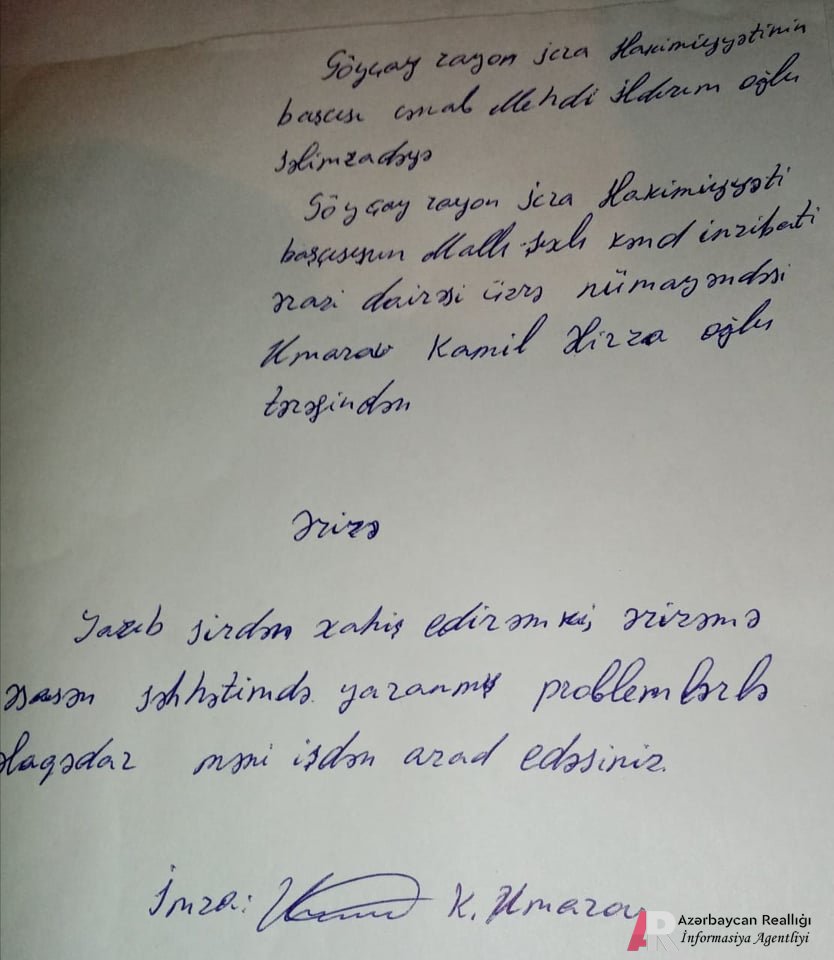 Göyçay rayon icra Hakimiyyətinin
başçısı cənab Mehdi İldırım oğlu
Səlimzadəyə
Göyçay rayon icra Hakimiyyəti
başçısının Mallı Şıxlı kənd inzibati
ərazi dairəsi üzrə nümayəndəsi
Umarov Kamil Mirzə oğlu
tərəfindən
Ərizə
Yazıb sizdən xahiş edirəm ki, ərizəmə
əsasən səhhətimdə yaranmış problemlərlə
əlaqədar məni işdən azad edəsiniz.
İmza: K. Umarov
Azərbaycan Reallığı
İnformasiya Agentliyi